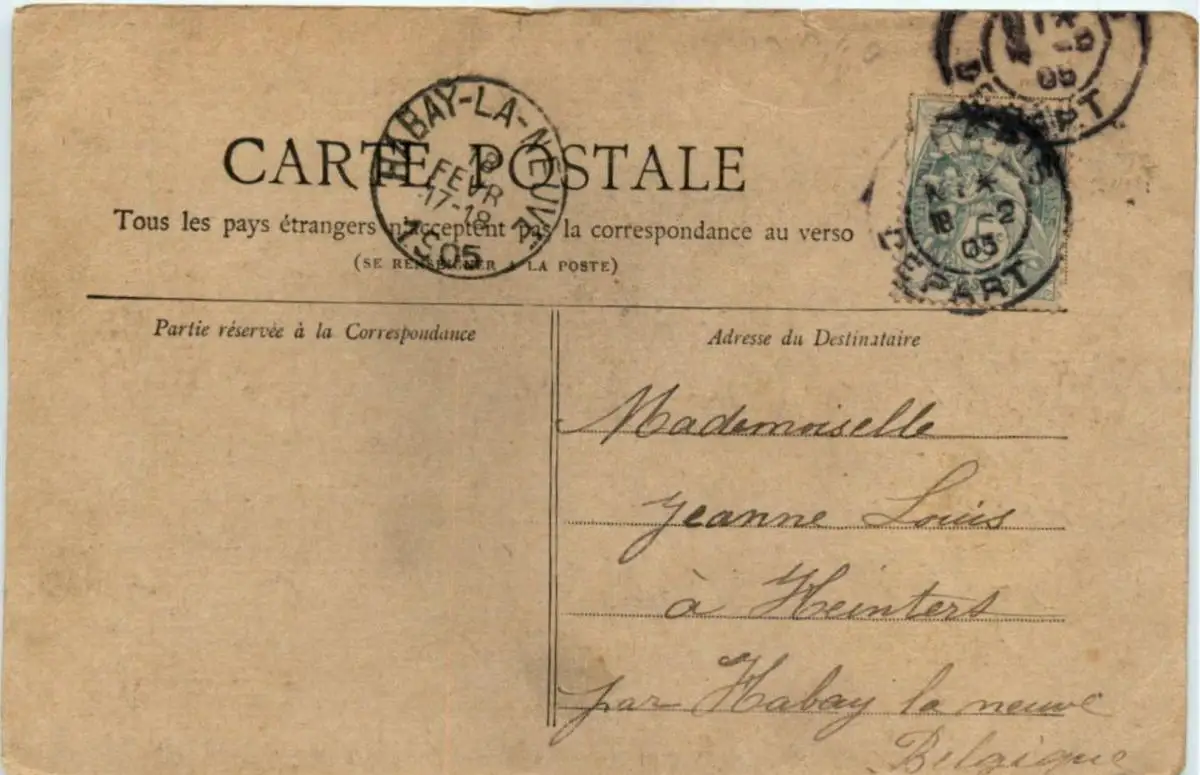 DÉPART
05
HABAY-LA-NEUVE
18
FEVR
17-18
1905
PARIS
18 -2
05
DÉPART
CARTE POSTALE
Tous les pays étrangers n'acceptent pas la correspondance au verso
(SE RENSEIGNER A LA POSTE)
Partie réservée à la Correspondance
Adresse du Destinataire
Mademoiselle
Jeanne Louis
à Heinters
par Habay la neuve
Belgique